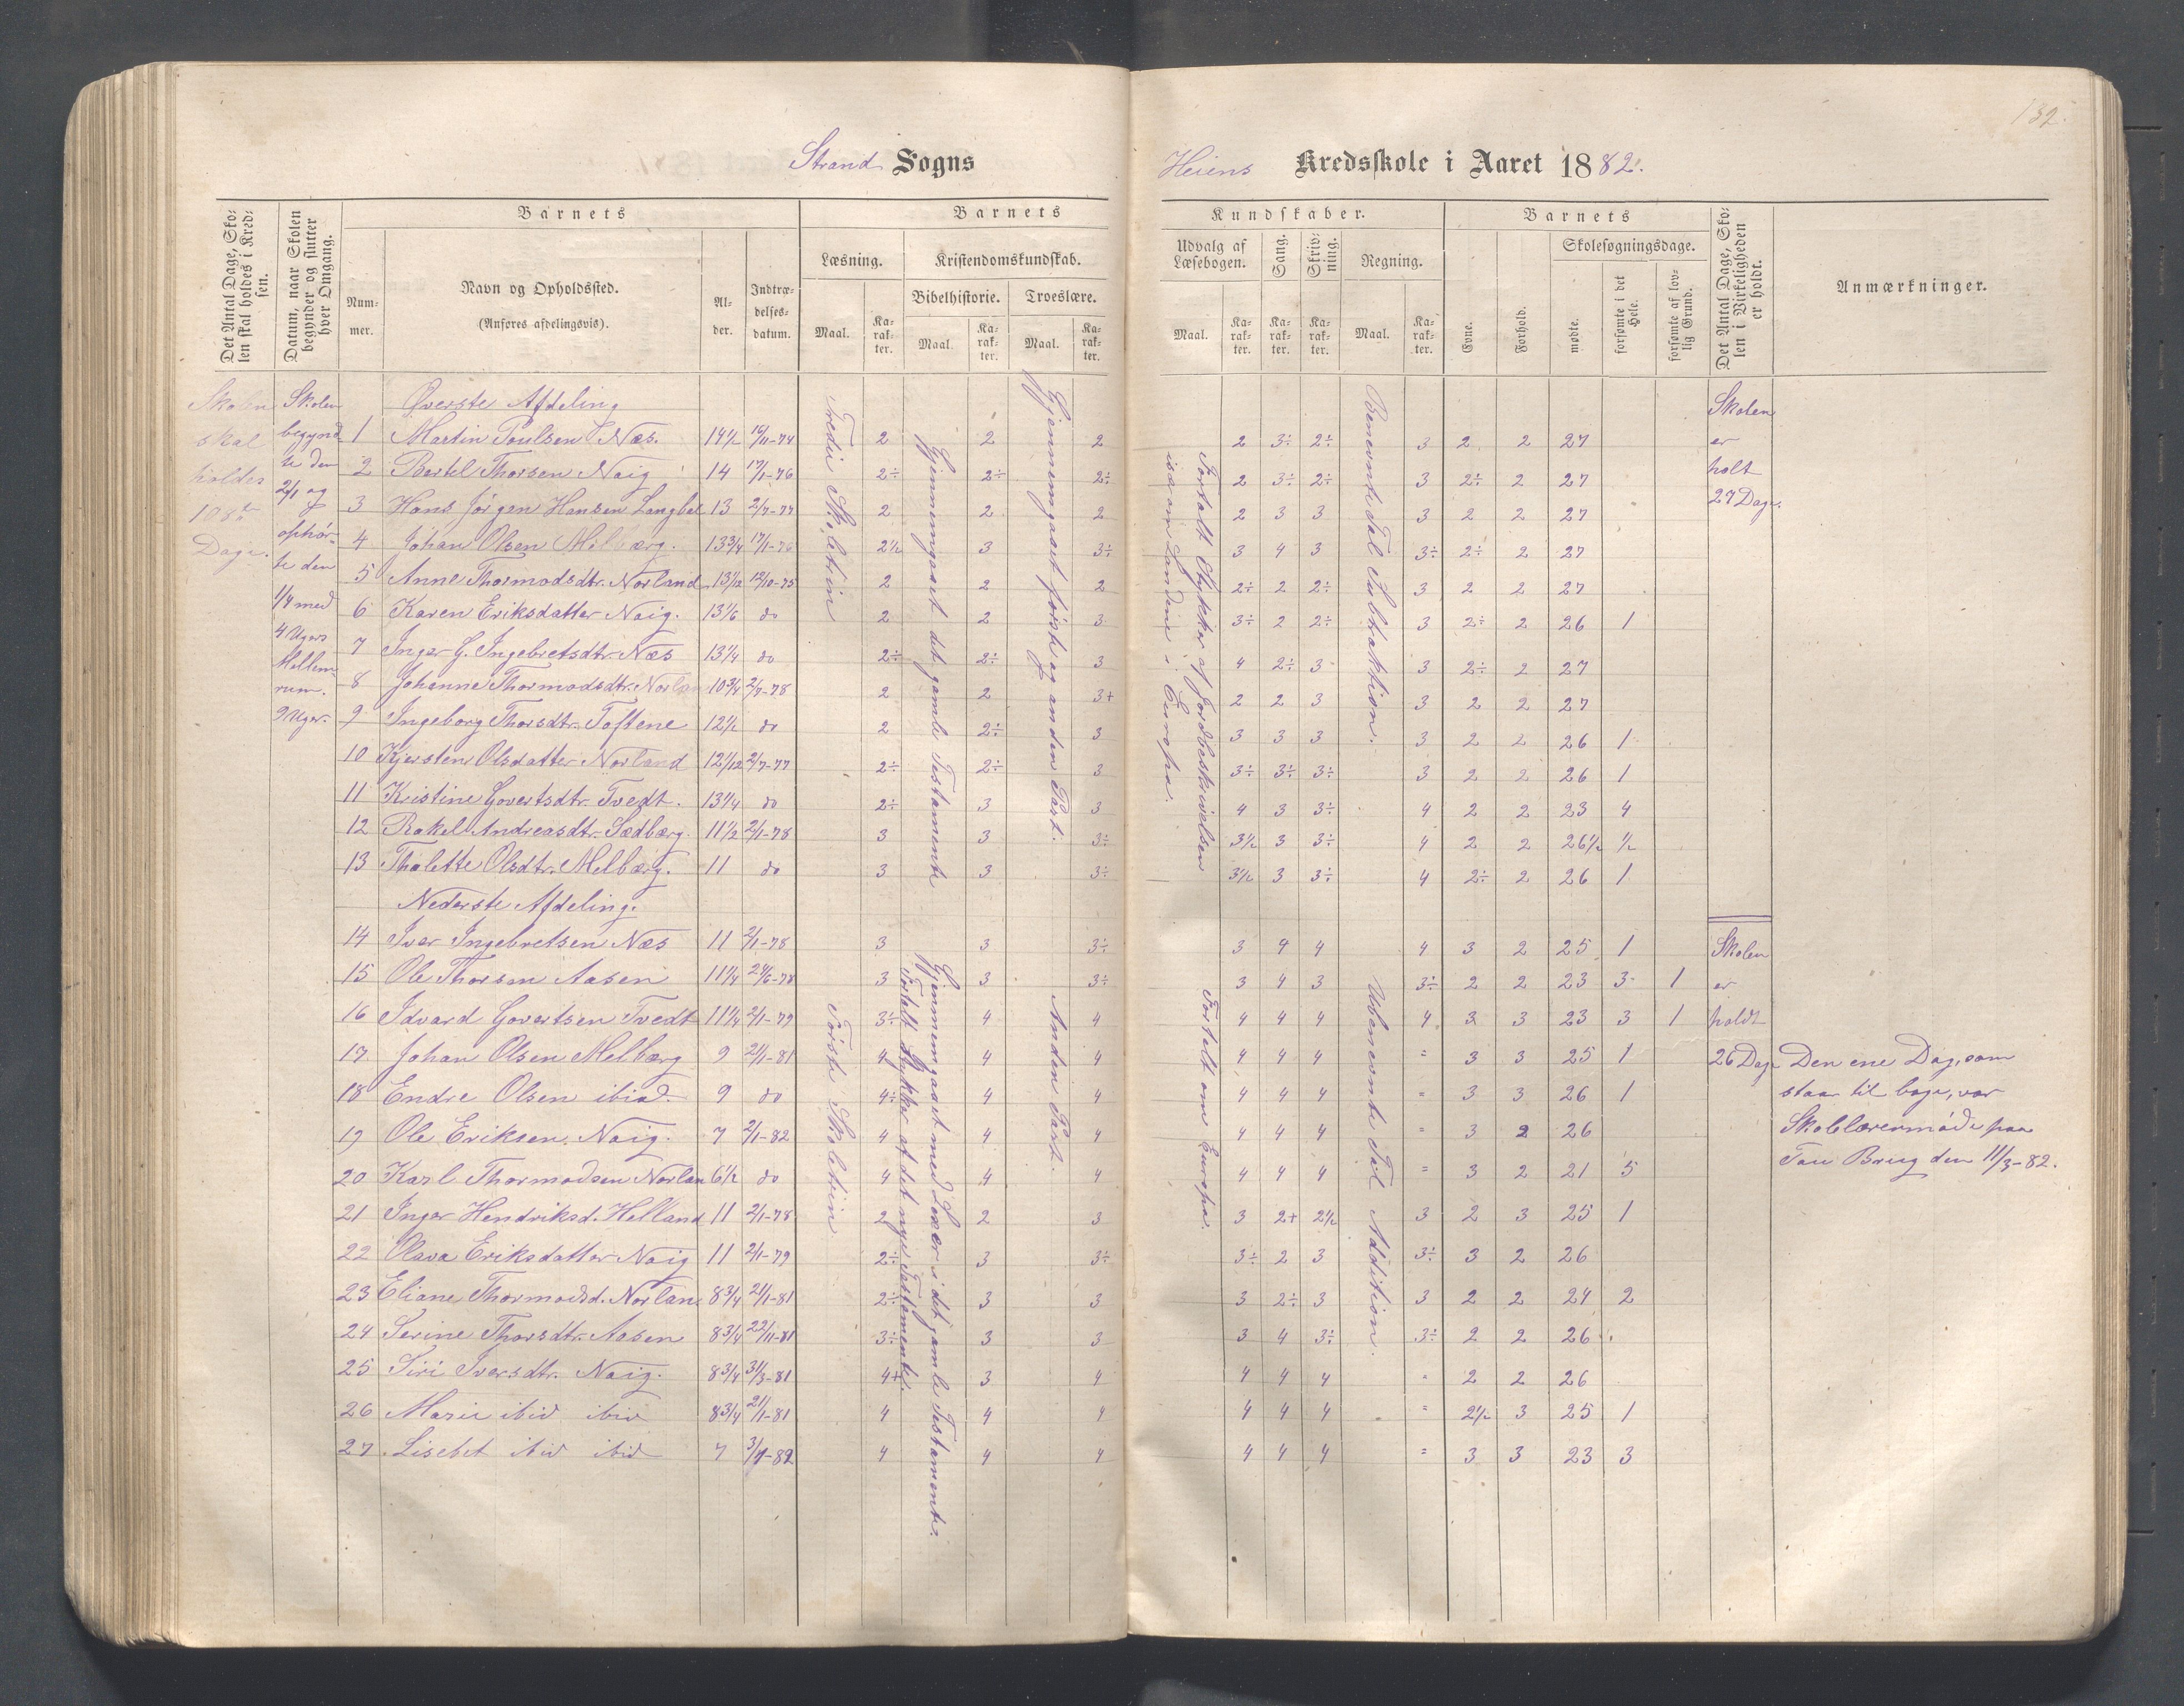 132.
Strand Sogns
Heiens Kredsskole i Aaret 1882.
Det Antal Dage, Skolen skal holdes i Kredsen.
Datum, naar Skolen begynder og slutter hver Omgang.
Barnets
Nummer.
Navn og Opholdssted.
(Anføres afdelingsvis).
Alder.
Indtrædelsesdatum.
Barnets
Læsning.
Maal.
Karakter.
Kristendomskundskab.
Bibelhistorie.
Maal.
Karakter.
Troeslære.
Maal.
Karakter.
Kundskaber.
Udvalg af Læsebogen.
Maal.
Karakter.
Sang.
Karakter.
Skrivning.
Karakter.
Regning.
Maal.
Karakter.
Barnets
Evne.
Forhold.
Skolesøgningsdage.
mødte.
forsømte i det Hele.
forsømte af lovlig Grund.
Det Antal Dage, Skolen i Virkeligheden er holdt.
Anmærkninger.
Skolen
skal
holdes
108
Dage.
Skolen
begynd
te den
2/1 og
ophør-
te den
1/4 med
4 Ugers
Mellem-
rum.
9 Uger.
Øverste Afdeling
1 Martin Poulsen Næs. 14½ 16/11-74 2 2 2 2 3÷ 2÷ 3 2 2 27
2 Bertel Thorsen Naig 14 17/1-76 2÷ 2÷ 2÷ 2 3÷ 2÷ 3 2÷ 2 27
3 Hans Jørgen Hansen Langbal 13 2/7-77 2 2 2 2 3 3 3 2 2 27
4 Johan Olsen Melbærg. 13¾ 17/1-76 2½ 3 3÷ 3 4 3 3÷ 2÷ 2 27
5 Anne Thormodsdtr. Norland 13 1/12 12/10-75 2 2 2 2÷ 2 2÷ 3 2 2 27
6 Karen Eriksdatter Naig. 13 1/6 do 2 2 3 3÷ 2 2÷ 3 2÷ 2 26 1
7 Inger G. Ingebretsdtr. Næs 13¼ do 2÷ 2÷ 3 4 2÷ 3 3 2÷ 2 27
8 Johanne Thormodsdtr. Norlan 10¾ 2/7-78 2 2 3+ 2 2 3 3 2 2 27
9 Ingeborg Thorsdtr. Toftene 12½ do 2 2÷ 3 3 3 3 3 2 2 26 1
10 Kjersten Olsdatter Norland 12 1/12 2/7-77 2÷ 2÷ 3 3÷ 3÷ 3÷ 3 2 2 26 1
11 Kristine Govertsdtr. Tvedt. 13¼ do 2÷ 3 3 4 3 3÷ 4 2 2 23 4
12 Rakel Andreasdtr. Sædbærg. 11½ 2/1-78 3 3 3÷ 3½ 3 3÷ 4 2 2 26½ ½
13 Tholette Olsdtr. Melbærg. 11 do 3 3 3÷ 3½ 3 3÷ 4 2÷ 2 26 1
Nederste Afdeling.
14 Iver Ingebretsen Næs 11 2/1-78 3 3 3÷ 3 4 4 4 3 2 25 1
15 Ole Thorsen Aasen 11¼ 24/6-78 3 3 3÷ 3 4 3 3÷ 2 2 23 3 1
16 Edvard Govertsen Tvedt 11¼ 2/1-79 3÷ 4 4 4 4 4 4 3 3 23 3 1
17 Johan Olsen Melbærg 9 21/1-81 4 4 4 4 4 4 = 3 3 25 1
18 Endre Olsen ibid. 9 do 4÷ 4 4 4 4 4 = 3 3 26 1
19 Ole Eriksen Naig. 7 2/1-82 4 4 4 4 4 4 = 3 2 26
20 Karl Thormodsen Norlan 6½ do 4 4 4 4 4 4 = 3 2 21 5
21 Inger Hendriksd. Helland 11 2/1-78 2 2 3 3 2+ 2½ 3 2 3 25 1
22 Olava Eriksdatter Naig 11 2/1-79 2÷ 3 3÷ 3÷ 2 3 3÷ 3 2 26
23 Eliane Thormodsd. Norlan 8¾ 21/1-81 2÷ 3 3 3 2÷ 3 3 2 2 24 2
24 Serine Thorsdtr. Aasen 8¾ 22/11-81 3÷ 3 3 3 4 3÷ 3÷ 2 2 26
25 Siri Iversdtr. Naig. 8¾ 31/3-81 4+ 3 4 4 4 4 = 2 2 26
26 Marie ibid ibid 8¾ 21/1-81 4 4 4 4 4 4 = 2½ 3 25 1
27 Lisebet ibid ibid 7 3/1-82 4 4 4 4 4 4 = 3 3 23 3
Tredie Skoletrin
Gjennemgaaet det gamle Testamente
Gjennemgaaet første og anden Part.
Fortalt Stykker af Jordbeskrivelsen
især om Landene i Europa.
Benevnte Tal Subtraktion.
Første Skoletrin
Gjennemgaaet med Lexer i det gamle Testamente.
Fortalt Stykker af det nye Testamentet.
Anden Part.
Fortalt om Europa.
Ubenevnte Tal Addition.
Skolen
er
holt
27 Dage.
Skolen
er
holdt
26 Dage
Den ene Dag, som
staar til bage, var
Skolelærermøde paa
Tau Brug den 11/3-82.